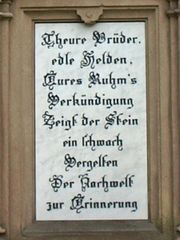 Theure Brüder.
edle Helden,
Eures Ruhm's
Verkündigung
Zeigt der Stein
ein schwach
Vergelten
Der Nachwelt
zur Erinnerung